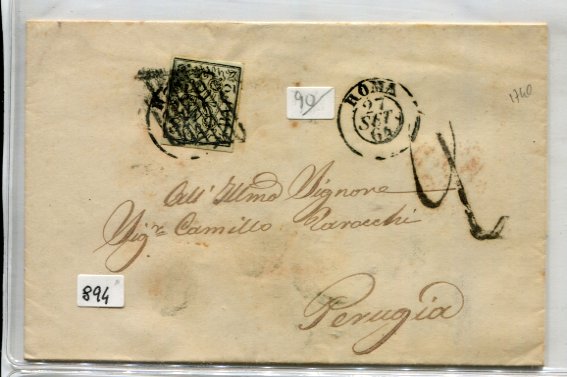 90
ROMA
27
SET
64
1740
All'Illmo Signore
Sigr Camillo Parocchi
894
Perugia